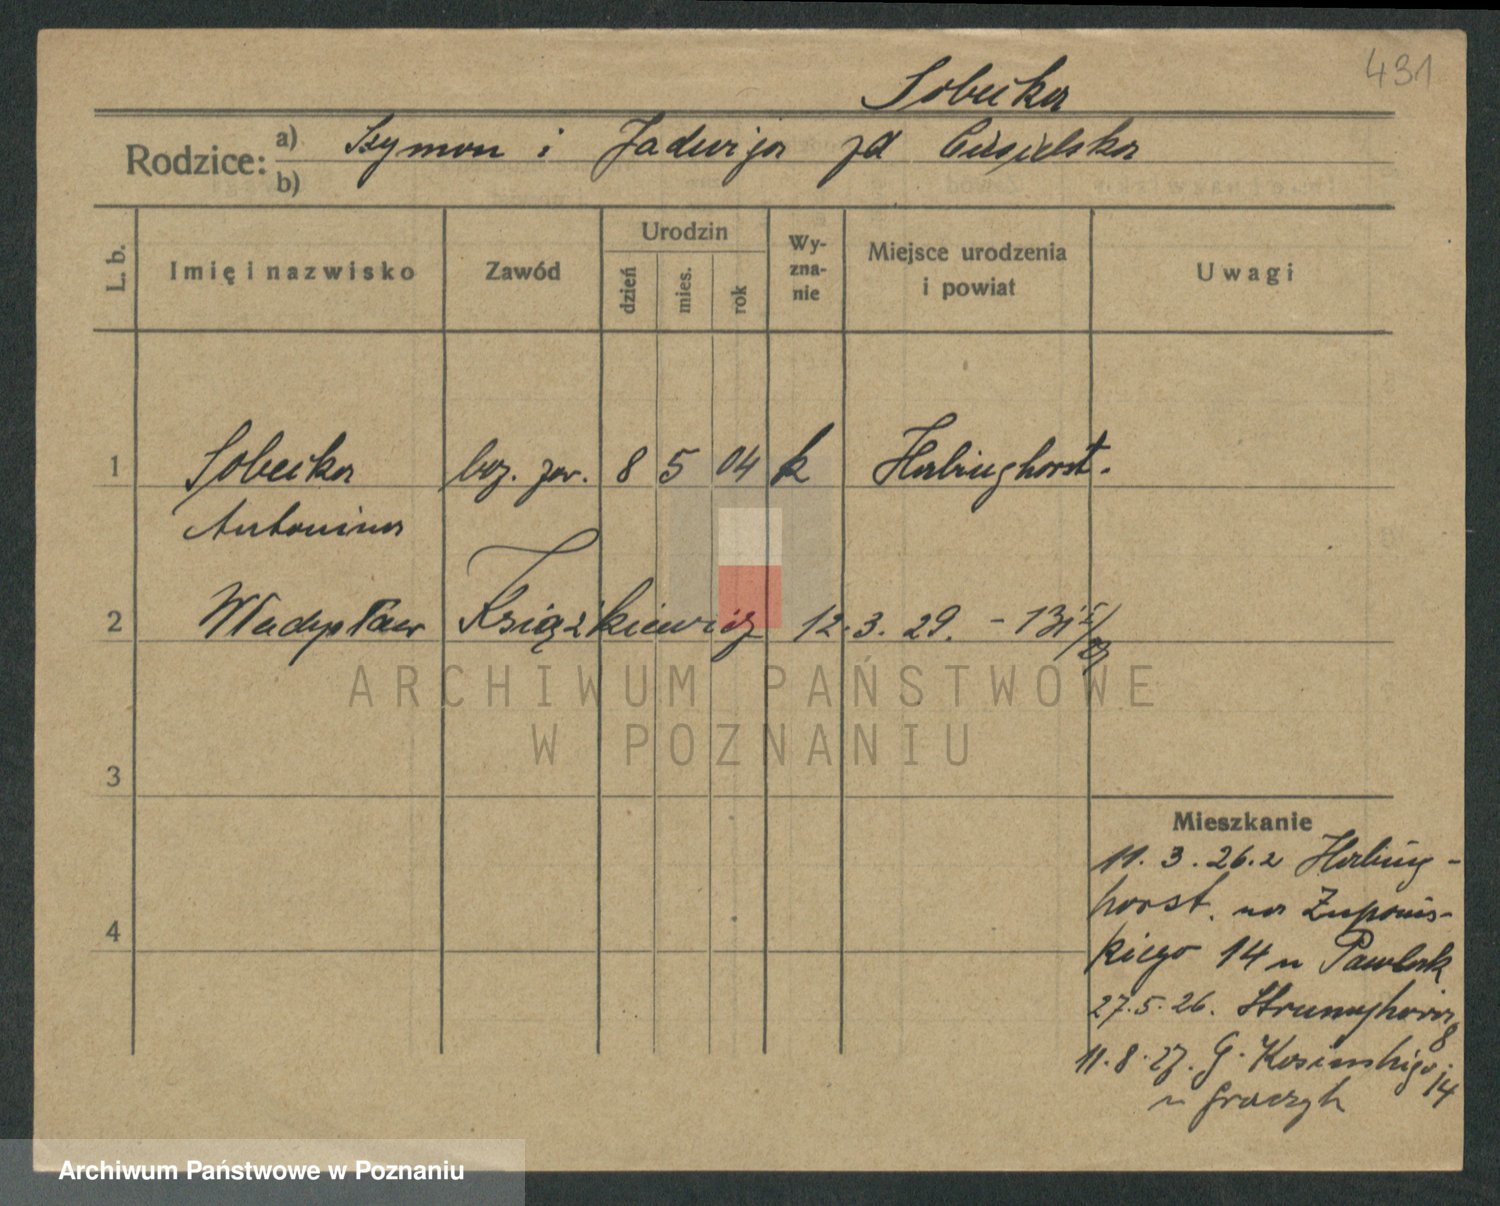 431
Sobecka
Rodzice: a) Szymon i Jadwiga zd Ciesielska
b)
L. b.
Imię i nazwisko
Zawód
Urodzin
dzień
mies.
rok
Wy-
zna-
nie
Miejsce urodzenia
i powiat
Uwagi
1 Sobecka bez. zaw. 8 5 04 k Herbinghorst.
Antonina
2 Władysław Książkiewicz 12.3.29.
ARCHIWUM PAŃSTWOWE
W POZNANIU
3
4
Mieszkanie
11.3.26. z Herbing-
horst. na Żupańs-
kiego 14 u Pawlak
27.5.26. 8
11.8.27. G. Kosińskiego 14
u Graczyk
Archiwum Państwowe w Poznaniu